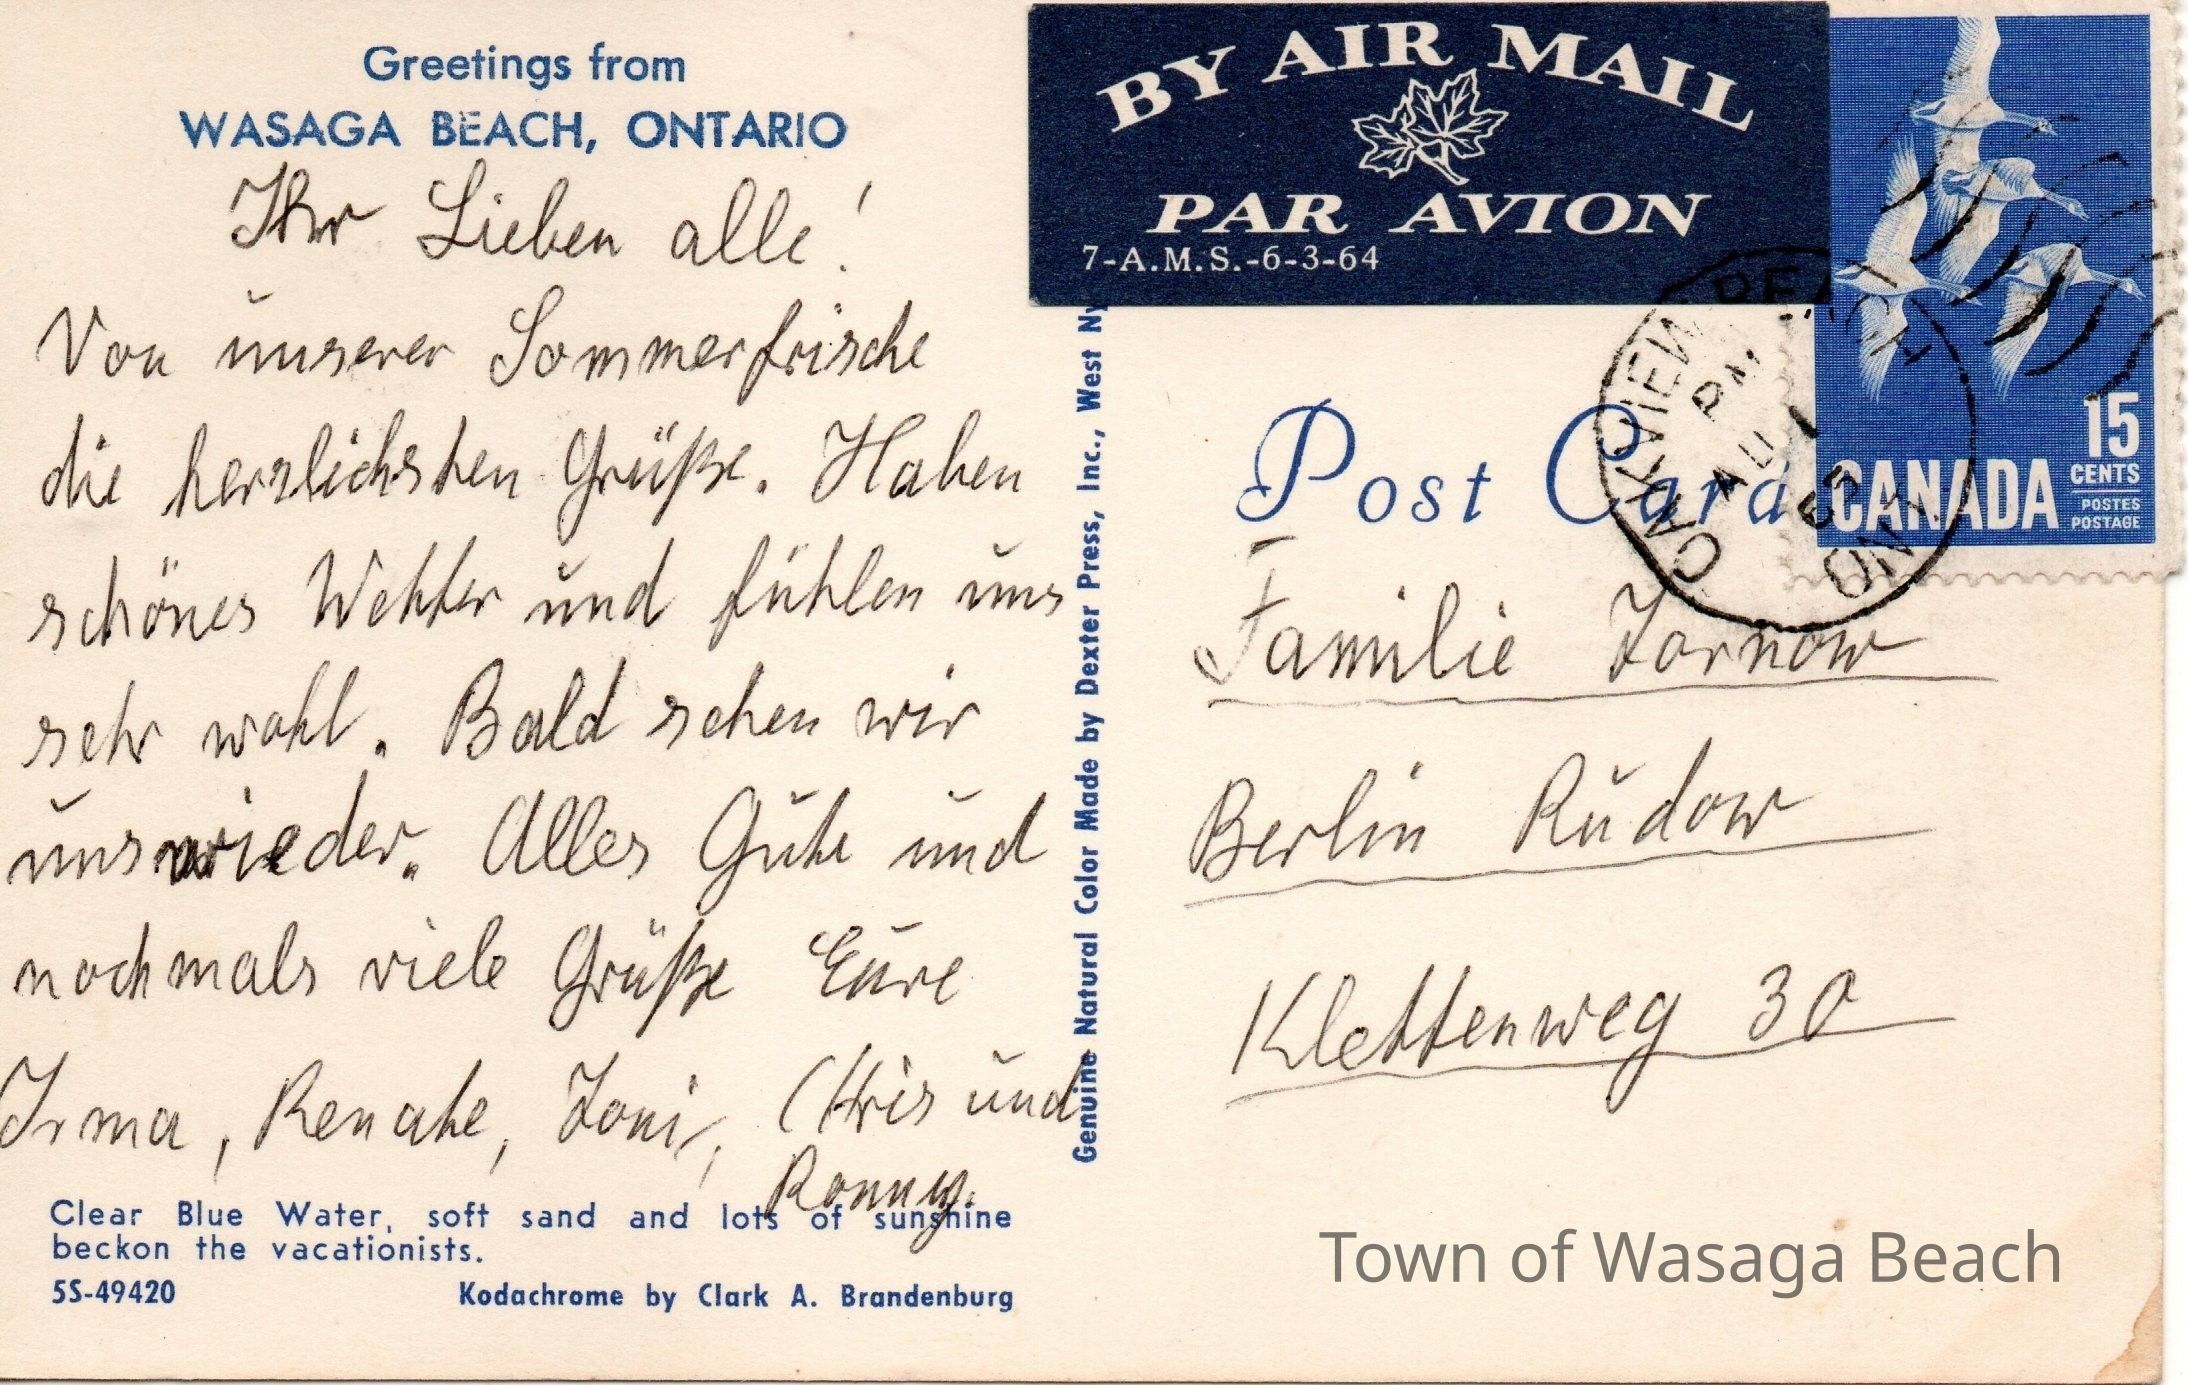 Greetings from
WASAGA BEACH, ONTARIO
Ihr Lieben alle!
Von unserer Sommerfrische
die herzlichsten Grüße. Haben
schönes Wetter und fühlen uns
sehr wohl. Bald sehen wir
uns wieder. Alles Gute und
nochmals viele Grüße Eure
Irma, Renate, Toni, Chris und
Ronny.
Clear Blue Water, soft sand and lots of sunshine
beckon the vacationists.
5S-49420 Kodachrome by Clark A. Brandenburg
Genuine Natural Color Made by Dexter Press, Inc., West Ny
BY AIR MAIL
PAR AVION
7-A.M.S.-6-3-64
15
CENTS
CANADA
POSTES
POSTAGE
OAKVIEW BEACH
PM
AU
65
ONT
Post Card
Familie
Berlin Rudow
Klettenweg 30
Town of Wasaga Beach